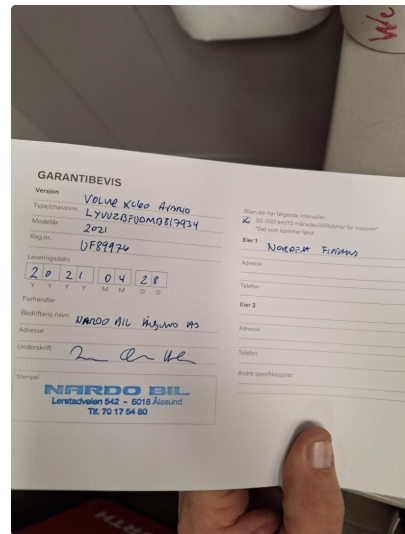 We
GARANTIBEVIS
Versjon VOLVO XC60 HYBRID
Type/chassisnr. LYVUZBFUDMB817934
Modellår 2021
Reg.nr. UF89976
Leveringsdato
2 0 2 1 0 4 2 8
Y Y Y Y M M D D
Forhandler
Bedriftens navn NARDO BIL ÅLESUND AS
Adresse
Underskrift
Stempel
NARDO BIL
Lerstadveien 542 - 6018 Ålesund
Tlf. 70 17 54 80
Bilen din har følgende intervaller:
30 000 km/12 måneder/driftstimer for motoren*
*Det som kommer først
Eier 1 NORDEA FINANS
Adresse
Telefon
Eier 2
Adresse
Telefon
Andre spesifikasjoner